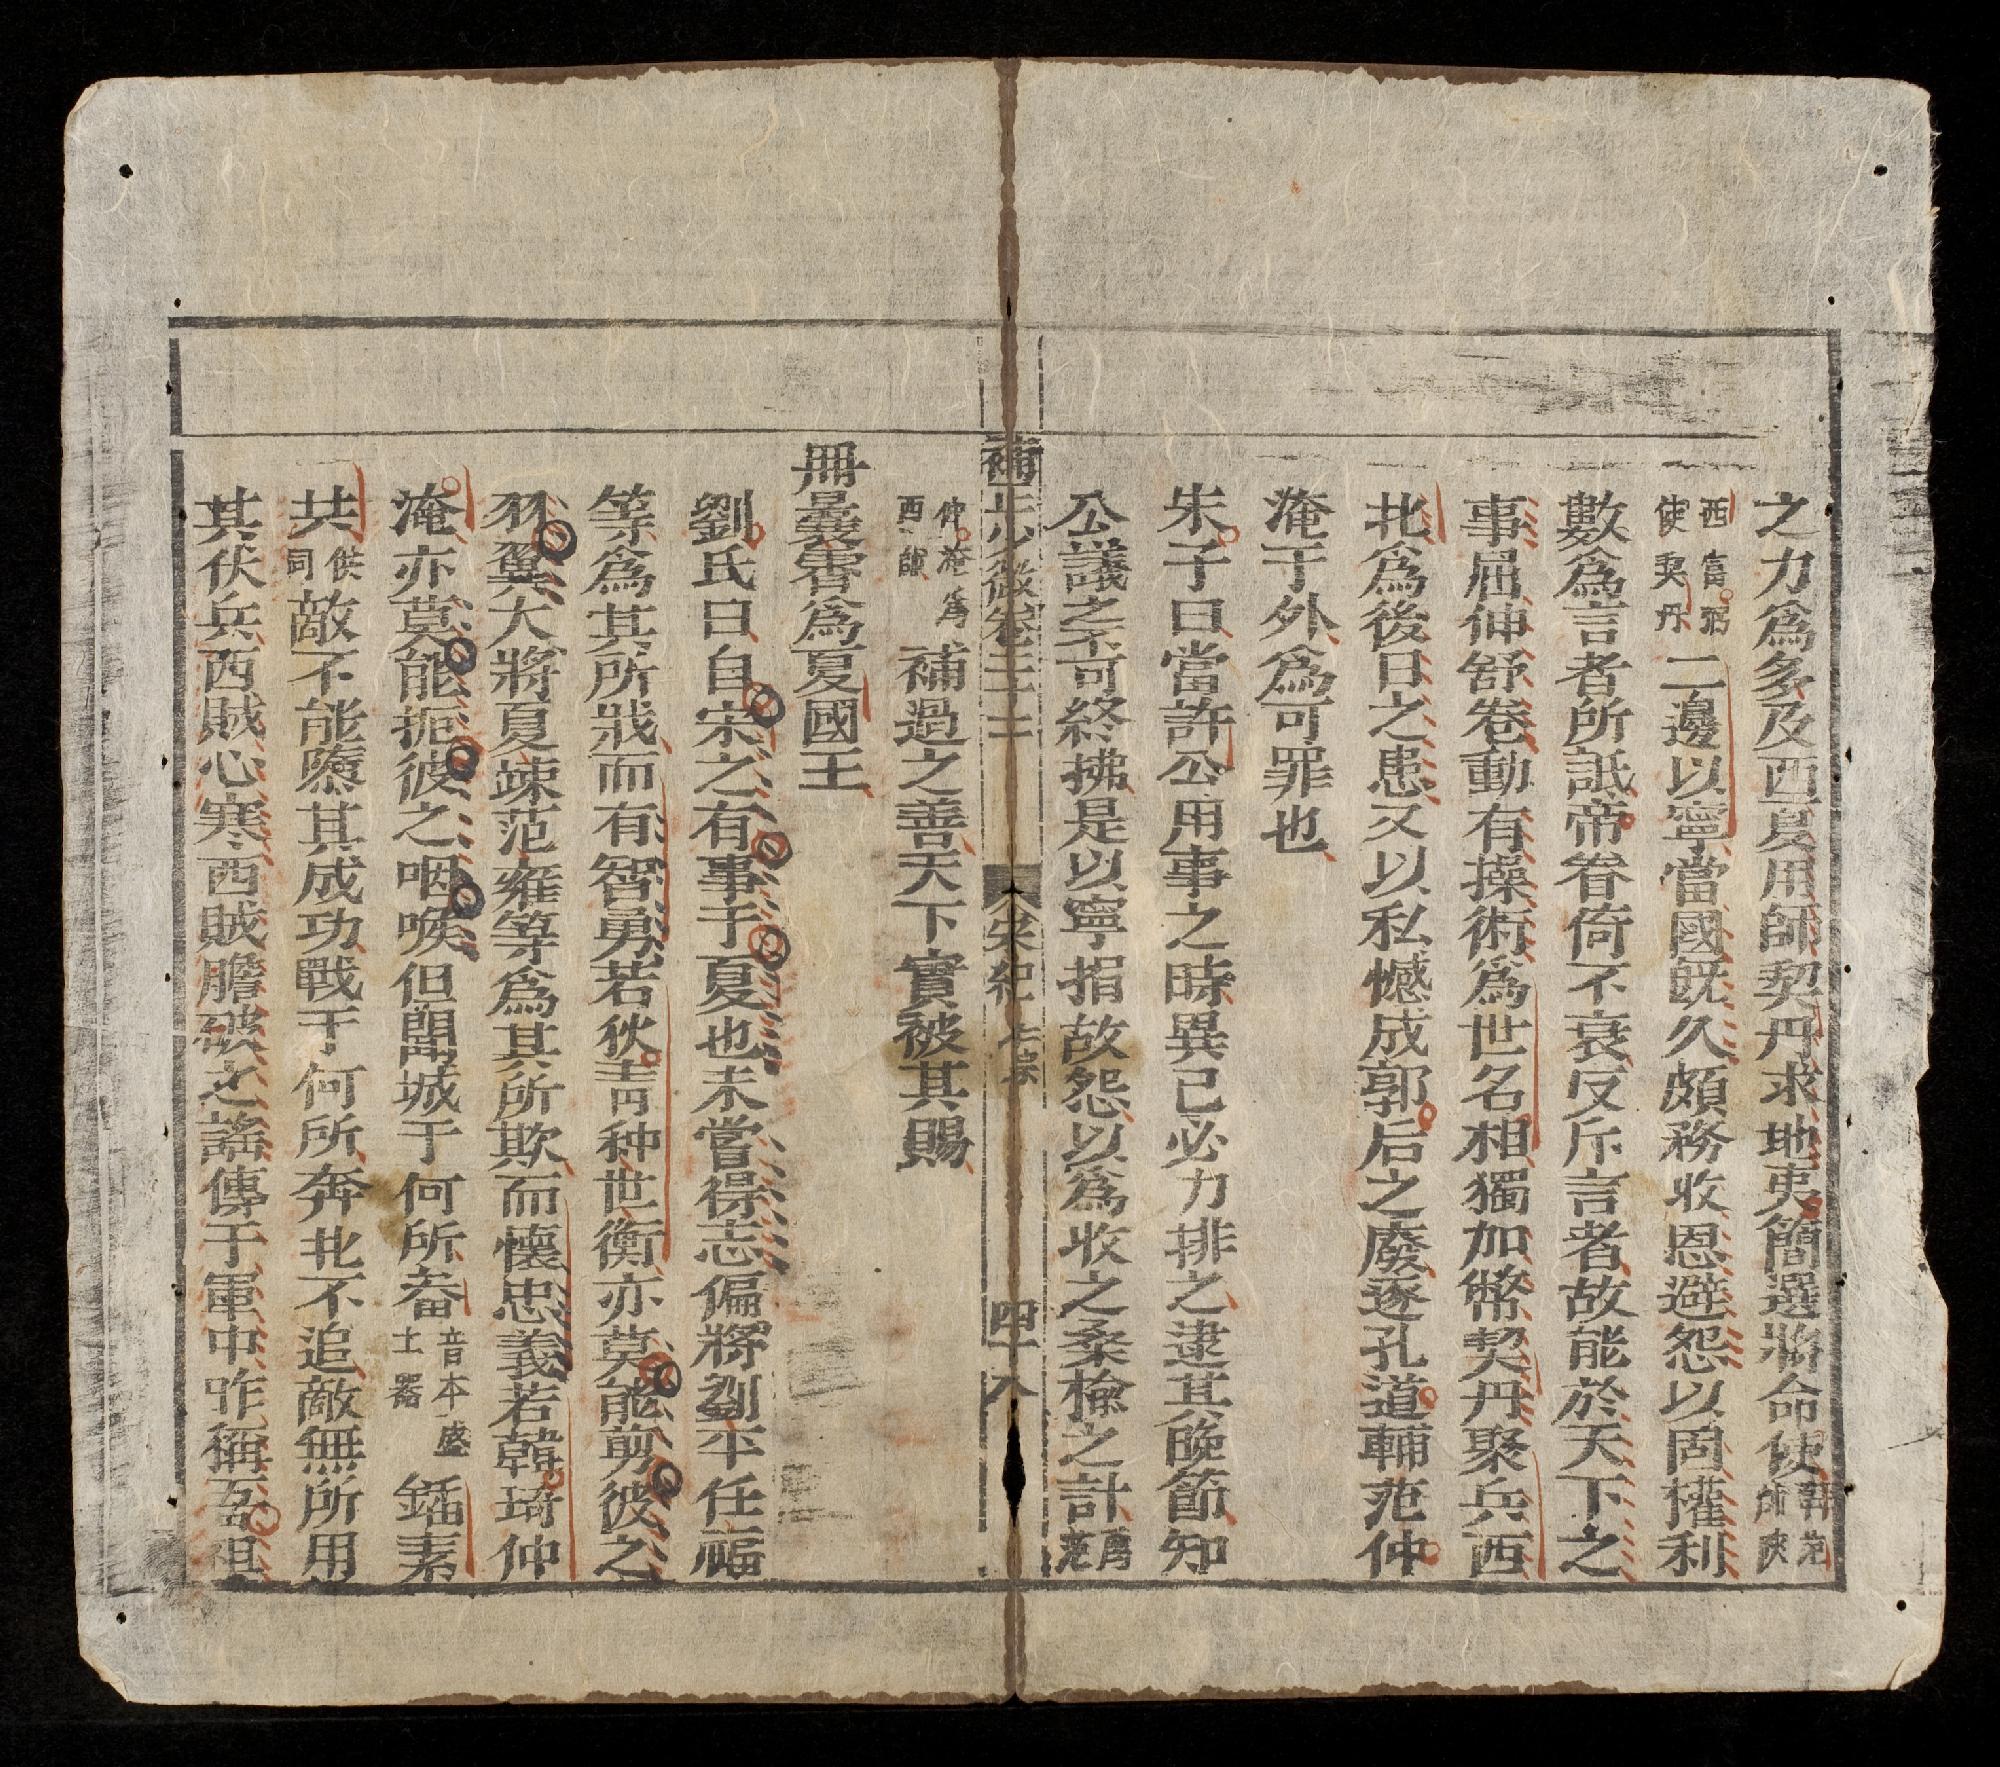 之力爲多及西夏用師契丹求地夷簡選將命使韓范師陝
西富弼使契丹二邊以寧當國旣久頗務收恩避怨以固權利
數爲言者所詆帝眷倚不衰反斥言者故能於天下之
事屈伸舒卷動有操術爲世名相獨加幣契丹聚兵西
北爲後日之患又以私憾成郭后之廢逐孔道輔范仲
淹于外爲可罪也
朱子曰當許公用事之時異已必力排之逮其晩節知
公議之不可終拂是以寧捐故怨以爲收之桑榆之計薦范
仲淹爲西師補過之善天下實被其賜
補正少微卷二十二 宋紀 仁宗 四十八
冊曩霄爲夏國王
劉氏曰自宋之有事于夏也未嘗得志偏將劉平任福
等爲其所戕而有智勇若狄靑种世衡亦莫能剪彼之
羽翼大將夏竦范雍等爲其所欺而懷忠義若韓琦仲
淹亦莫能扼彼之咽喉但聞城于何所畚音本盛土器鍤素
共供同敵不能隳其成功戰于何所奔北不追敵無所用
其伏兵西賊心寒西賊膽破之謠傳于軍中咋稱吾祖